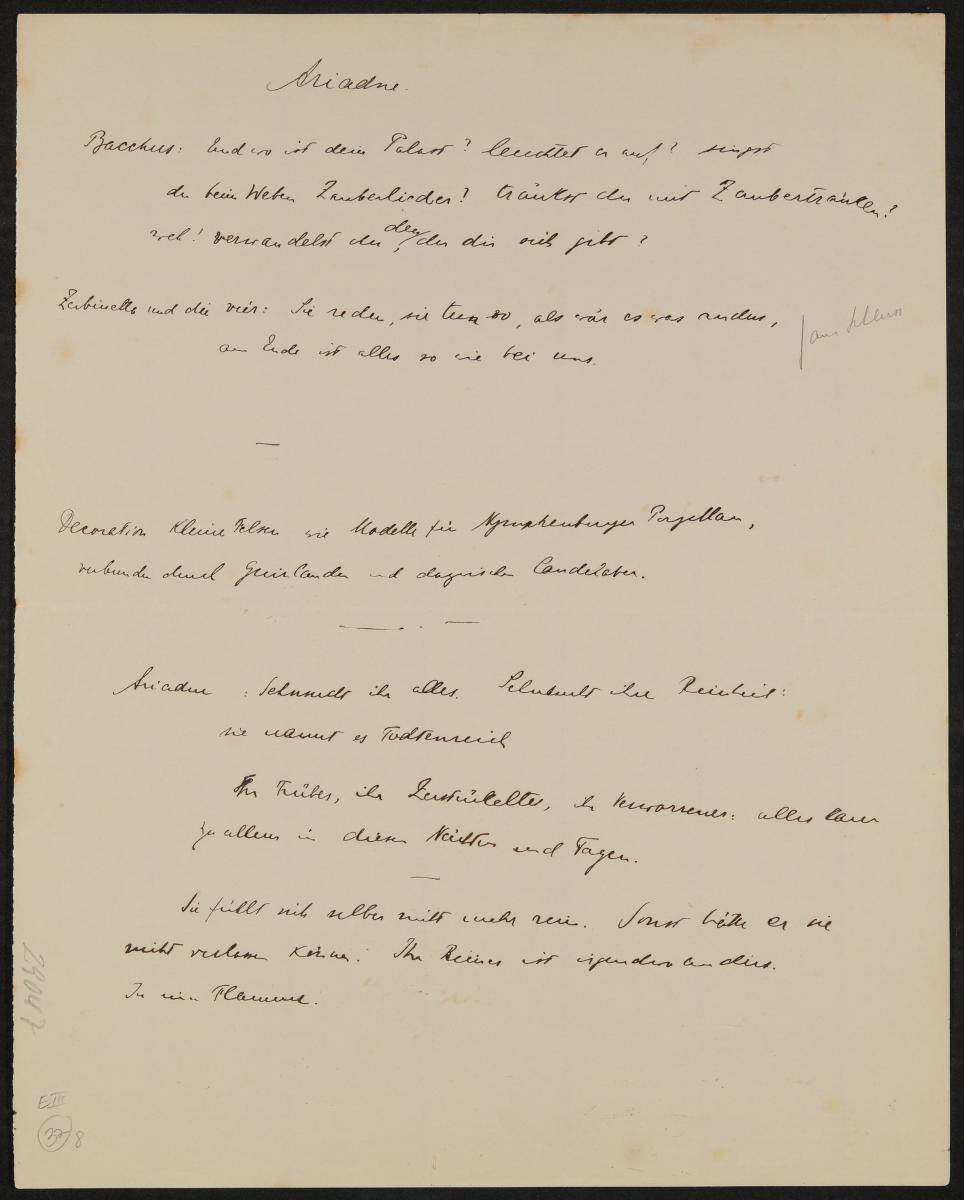 Ariadne.
Bacchus: Und wo ist dein Palast? leuchtet er auf? singst
du beim Weben Zauberlieder? tränkst du mit Zaubertränken?
weh! verwandelst du den, der dir sich gibt?
Zerbinetta und die vier: Sie reden, sie tun so, als wär es was andres,
am Ende ist alles so wie bei uns.
am Schluss
Decoration kleine Felsen wie Modelle für Nymphenburger Porzellan,
verbunden durch Guirlanden und dazwischen Candelaber.
Ariadne: Sehnsucht ihr alles. Sehnsucht ihre Reinheit:
sie nannte es Todtenreich
Ihr Trübes, ihr Zerstückeltes, ihr Verworrenes: alles kam
zu allem in diesen Nächten und Tagen.
Sie fühlt sich selber nicht mehr rein. Sonst hätte er sie
nicht verlassen können. Ihr Reines ist irgendwo anders.
In eine Flamme.
29047
E III
22 8